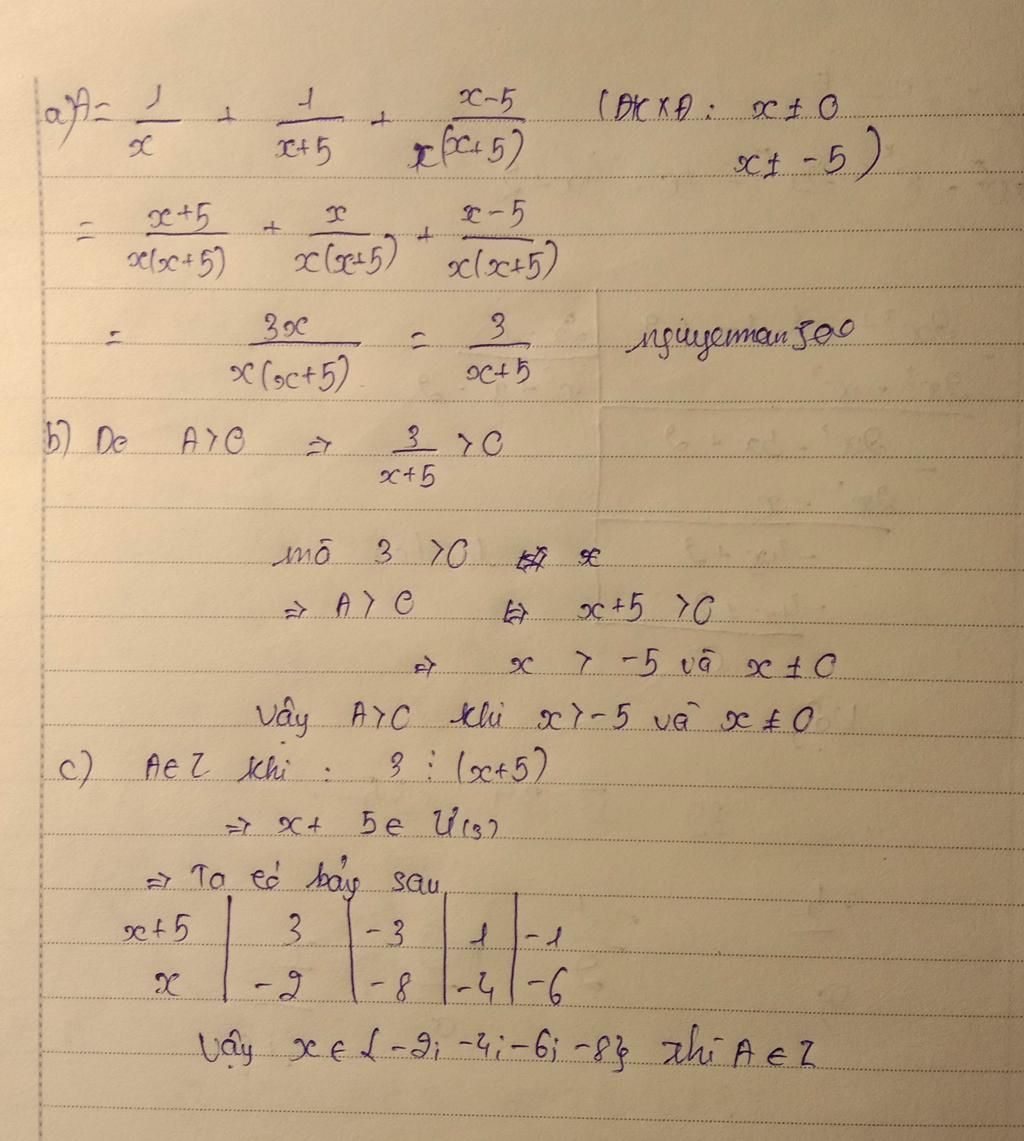 a) A = 1/x + 1/(x+5) + (x-5)/(x(x+5)) (ĐKXĐ: x ≠ 0
x ≠ -5)
= (x+5)/(x(x+5)) + x/(x(x+5)) + (x-5)/(x(x+5))
= 3x/(x(x+5)) = 3/(x+5)
b) Để A > 0 => 3/(x+5) > 0
mà 3 > 0 x
=> A > 0 <=> x+5 > 0
=> x > -5 và x ≠ 0
Vậy A > 0 khi x > -5 và x ≠ 0
c) A ∈ Z khi : 3 ⋮ (x+5)
=> x + 5 ∈ Ư(3)
=> Ta có bảy sau
x+5 | 3 | -3 | 1 | -1
x | -2 | -8 | -4 | -6
Vậy x ∈ {-2; -4; -6; -8} thì A ∈ Z